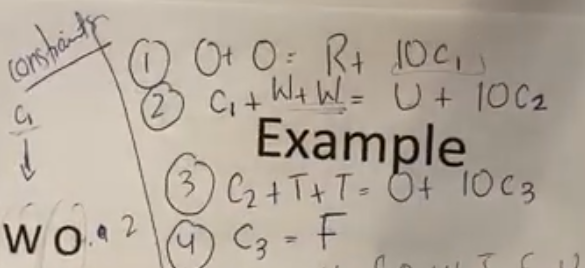 constraints
① O+ O = R+ 10C₁
② C₁ + W+W = U + 10C₂
C₁
↓
Example
③ C₂ +T+T = O+ 10C₃
W O . 2
④ C₃ = F